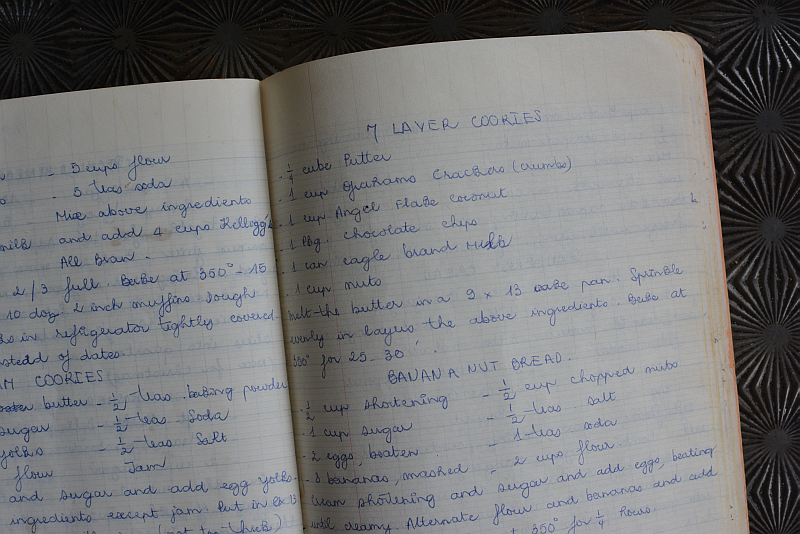 - 5 cups flour
- 5 teas soda
Mix above ingredients
milk and add 4 cups Kellogg's
All Bran.
2/3 full. Bake at 350° - 15
10 doz 2 inch muffins Dough
in refrigerator tightly covered.
instead of dates.
COOKIES
butter - 1/2 teas. baking powder
sugar - 1/2 teas. Soda
yolks - 1/2 teas. Salt
flour Jam
and sugar and add egg yolks.
ingredients except jam. Put in
(not too thick)
7 LAYER COOKIES
1/4 cube Butter
1 cup Grahams Crackers (crumbs)
1 cup Angel Flake Coconut
1 Pkg. chocolate chips
1 can eagle brand Milk
1 cup nuts
Melt the butter in a 9 x 13 cake pan. Sprinkle
evenly in layers the above ingredients. Bake at
350° for 25-30'.
BANANA NUT BREAD.
1/2 cup shortening - 1/2 cup chopped nuts
1 cup sugar - 1/2 teas salt
2 eggs, beaten - 1 teas soda
3 bananas, mashed - 2 cups flour.
Cream shortening and sugar and add eggs, beating
until creamy. Alternate flour and bananas and add
350° for 1/4 hours.